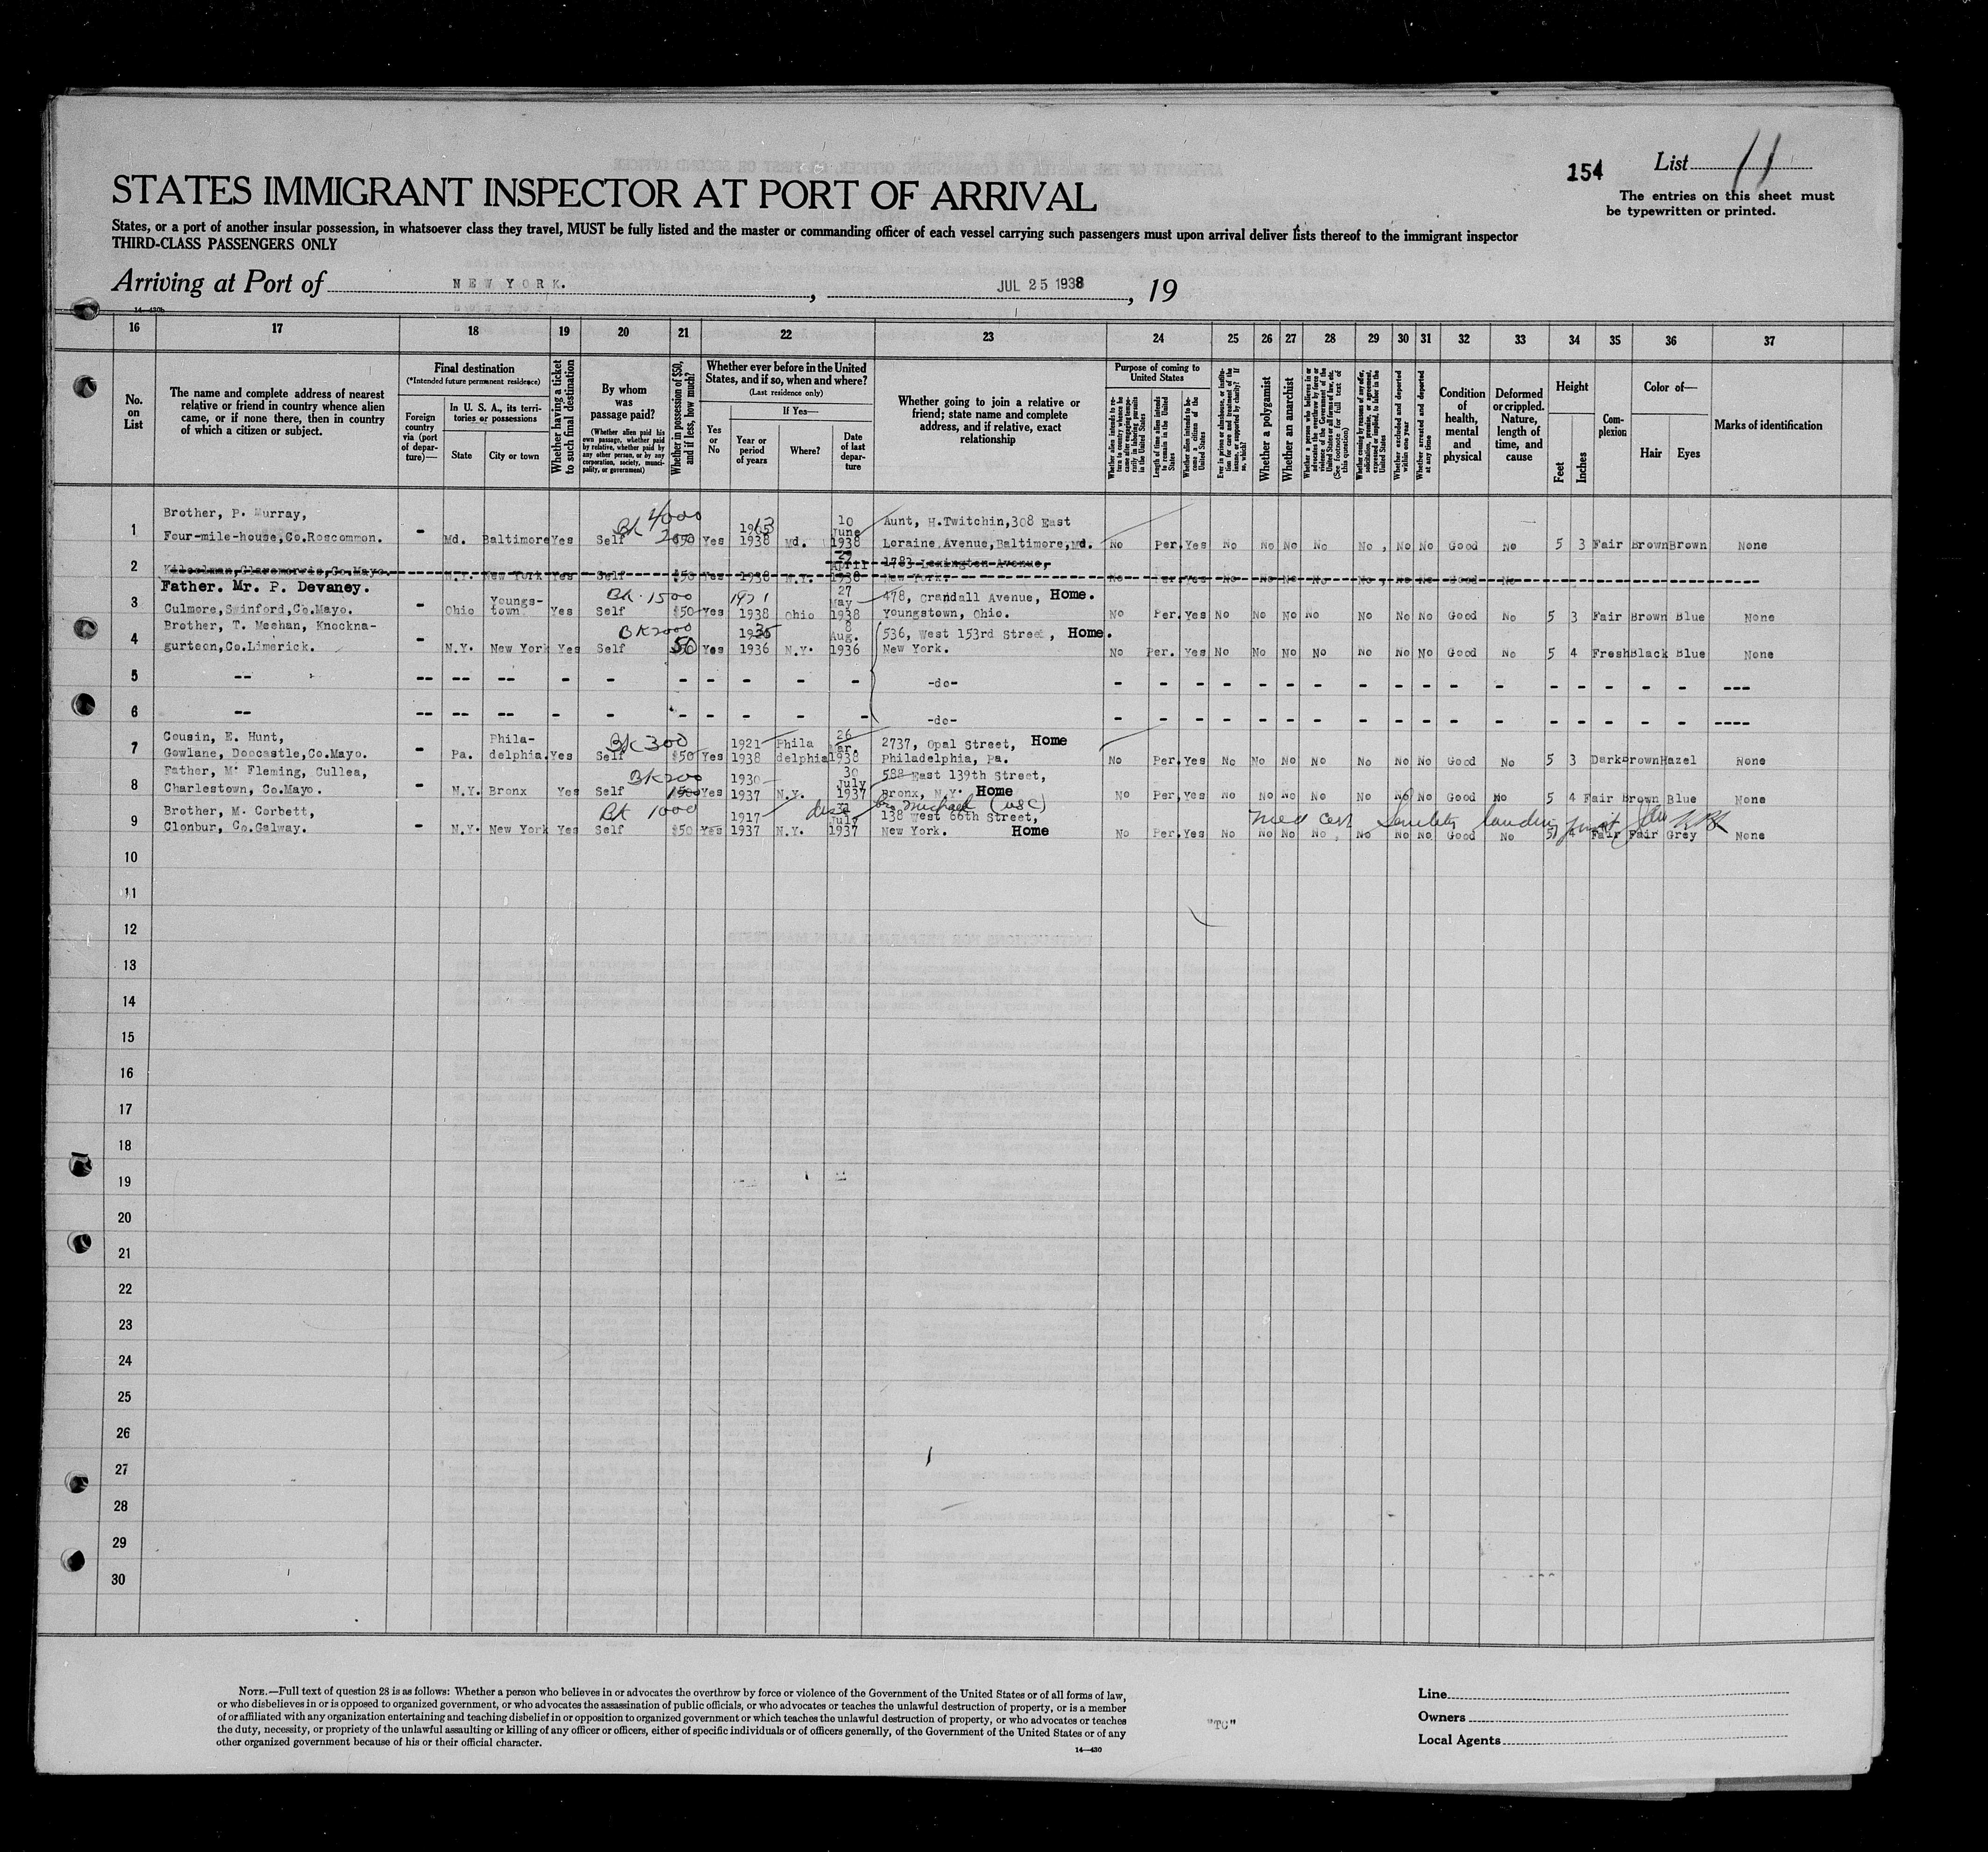 154
List 11
The entries on this sheet must
be typewritten or printed.
STATES IMMIGRANT INSPECTOR AT PORT OF ARRIVAL
States, or a port of another insular possession, in whatsoever class they travel, MUST be fully listed and the master or commanding officer of each vessel carrying such passengers must upon arrival deliver lists thereof to the immigrant inspector
THIRD-CLASS PASSENGERS ONLY
Arriving at Port of NEW YORK. , JUL 25 1938 , 19
14-430b
16 17 18 19 20 21 22 23 24 25 26 27 28 29 30 31 32 33 34 35 36 37
No. on List
The name and complete address of nearest
relative or friend in country whence alien
came, or if none there, then in country
of which a citizen or subject.
Final destination
(*Intended future permanent residence)
Foreign country via (port of departure)—
In U. S. A., its territories or possessions
State
City or town
Whether having a ticket to such final destination
By whom was passage paid?
(Whether alien paid his own passage, whether paid by relative, whether paid by any other person, or by any corporation, society, municipality, or government)
Whether in possession of $50, and if less, how much?
Whether ever before in the United
States, and if so, when and where?
(Last residence only)
Yes or No
If Yes—
Year or period of years
Where?
Date of last departure
Whether going to join a relative or
friend; state name and complete
address, and if relative, exact
relationship
Purpose of coming to United States
Whether alien intends to return to country whence he came after engaging temporarily in laboring pursuits in the United States
Length of time alien intends to remain in the United States
Whether alien intends to become a citizen of the United States
Ever in prison or almshouse, or institution for care and treatment of the insane, or supported by charity? If so, which?
Whether a polygamist
Whether an anarchist
Whether a person who believes in or advocates the overthrow by force or violence of the Government of the United States or all forms of law, etc. (See footnote for full text of this question)
Whether coming by reason of any offer, solicitation, promise, or agreement, expressed or implied, to labor in the United States
Whether excluded and deported within one year
Whether arrested and deported at any time
Condition of health, mental and physical
Deformed or crippled. Nature, length of time, and cause
Height
Feet
Inches
Complexion
Color of—
Hair
Eyes
Marks of identification
1 Brother, P. Murray,
Four-mile-house,Co.Roscommon. - Md. Baltimore Yes Self Bk 4000 $50 Yes 1938 Md. 10 June 1938 Aunt, H.Twitchin,308 East
Loraine Avenue,Baltimore,Md. No Per. Yes No No No No No No No Good No 5 3 Fair Brown Brown None
2 Kilcolman,Claremorris,Co.Mayo. N.Y. New York Yes Self $50 Yes 1938 N.Y. April 1938 1783 Lexington Avenue,
New York. No Per. Yes No No No No No No No Good No
3 Father. Mr. P. Devaney.
Culmore,Swinford,Co.Mayo. - Ohio Youngs-town Yes Self Bk. 1500 $50 Yes 1921 1938 Ohio 27 May 1938 478, Crandall Avenue, Home.
Youngstown, Ohio. No Per. Yes No No No No No No No Good No 5 3 Fair Brown Blue None
4 Brother, T. Meehan, Knockna-
gurteen,Co.Limerick. - N.Y. New York Yes Self BK 2000 50 Yes 1936 N.Y. 8 Aug. 1936 536, West 153rd Street, Home.
New York. No Per. Yes No No No No No No No Good No 5 4 Fresh Black Blue None
5 -- -- -- -- - - - - - - - -do- - - - - - - - - - - - - - - - - - ---
6 -- -- -- -- - - - - - - - -do- - - - - - - - - - - - - - - - - - ----
7 Cousin, E. Hunt,
Gowlane, Doocastle,Co.Mayo. - Pa. Phila-delphia. Yes Self Bk 300 $50 Yes 1921 1938 Phila delphia 26 Mar. 1938 2737, Opal Street, Home
Philadelphia, Pa. No Per. Yes No No No No No No No Good No 5 3 Dark Brown Hazel None
8 Father, M. Fleming, Cullea,
Charlestown, Co.Mayo. - N.Y. Bronx Yes Self BK 200 Yes 1930 1937 N.Y. 30 July 1937 588 East 139th Street,
Bronx, N.Y. Home No Per. Yes No No No No No No No Good No 5 4 Fair Brown Blue None
9 Brother, M. Corbett,
Clonbur, Co.Galway. - N.Y. New York Yes Self Bk 1000 $50 Yes 1917 1937 N.Y. 31 July 1937 bro Michael (USC)
138 West 66th Street,
New York. Home No Per. Yes No No No No No No No Good No 5 Fair Fair Grey None
Med Cert Senility
10
11
12
13
14
15
16
17
18
19
20
21
22
23
24
25
26
27
28
29
30
NOTE.—Full text of question 28 is as follows: Whether a person who believes in or advocates the overthrow by force or violence of the Government of the United States or of all forms of law,
or who disbelieves in or is opposed to organized government, or who advocates the assassination of public officials, or who advocates or teaches the unlawful destruction of property, or is a member
of or affiliated with any organization entertaining and teaching disbelief in or opposition to organized government or which teaches the unlawful destruction of property, or who advocates or teaches
the duty, necessity, or propriety of the unlawful assaulting or killing of any officer or officers, either of specific individuals or of officers generally, of the Government of the United States or of any
other organized government because of his or their official character.
14—430
"TC"
Line
Owners
Local Agents